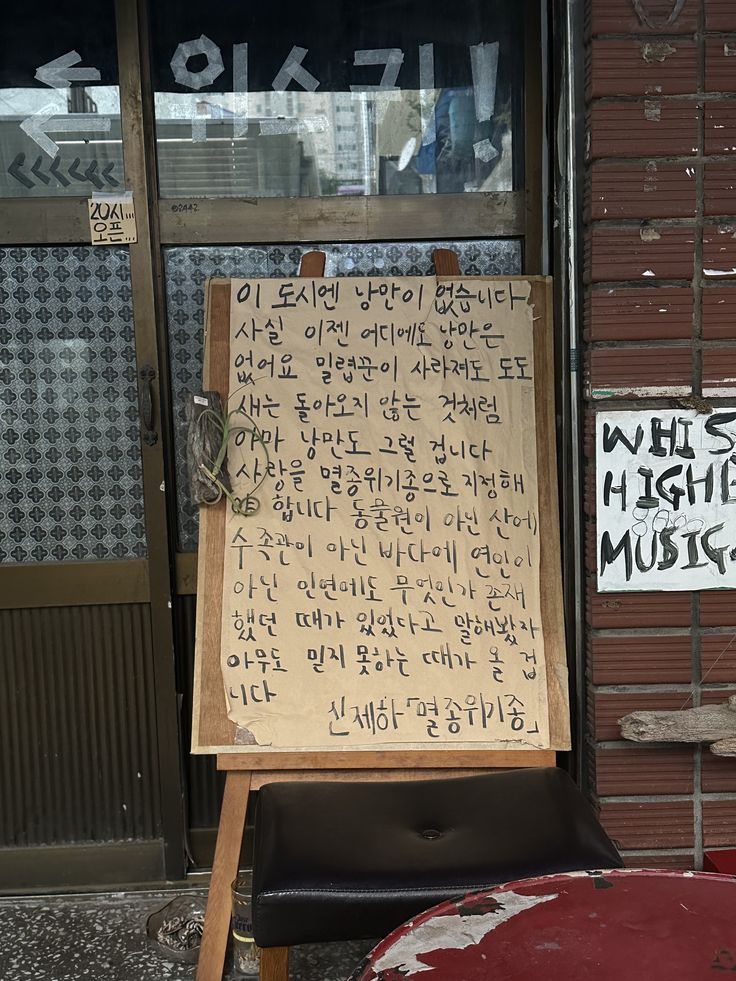 위스키!
20시...
오픈...
이 도시엔 낭만이 없습니다
사실 이젠 어디에도 낭만은
없어요 밀렵꾼이 사라져도 도도
새는 돌아오지 않는 것처럼
아마 낭만도 그럴 겁니다
사랑을 멸종위기종으로 지정해
합니다 동물원이 아닌 산에
수족관이 아닌 바다에 연인이
아닌 인연에도 무엇인가 존재
했던 때가 있었다고 말해봤자
아무도 믿지 못하는 때가 올 겁
니다
신제하 「멸종위기종」
WHIS
HIGH
MUSIC